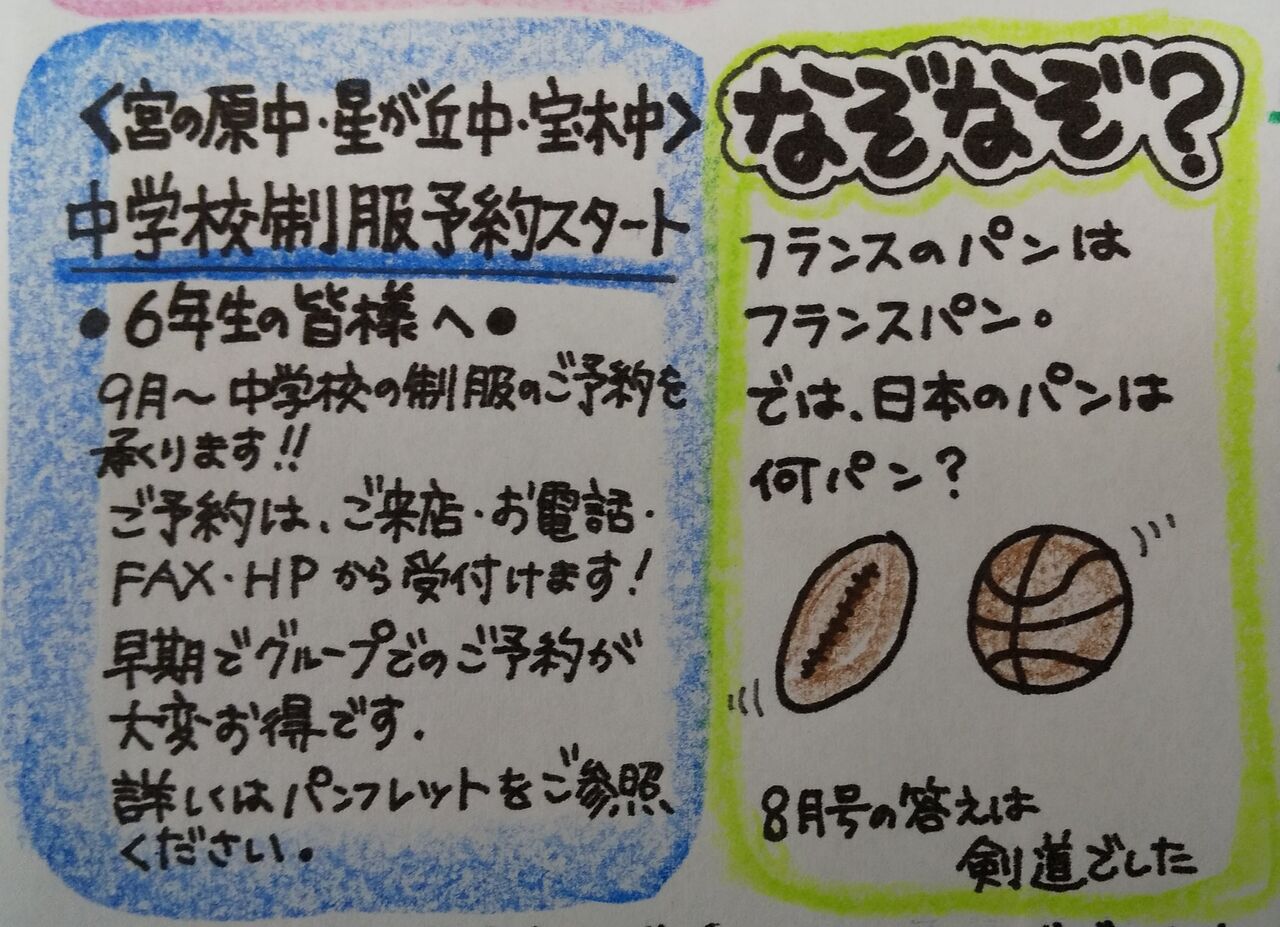 〈宮の原中・星が丘中・宝木中〉
中学校制服予約スタート
●6年生の皆様へ●
9月〜中学校の制服のご予約を
承ります!!
ご予約は、ご来店・お電話・
FAX・HPから受付けます!
早期でグループでのご予約が
大変お得です.
詳しくはパンフレットをご参照
ください。
なぞなぞ?
フランスのパンは
フランスパン。
では、日本のパンは
何パン?
8月号の答えは
剣道でした